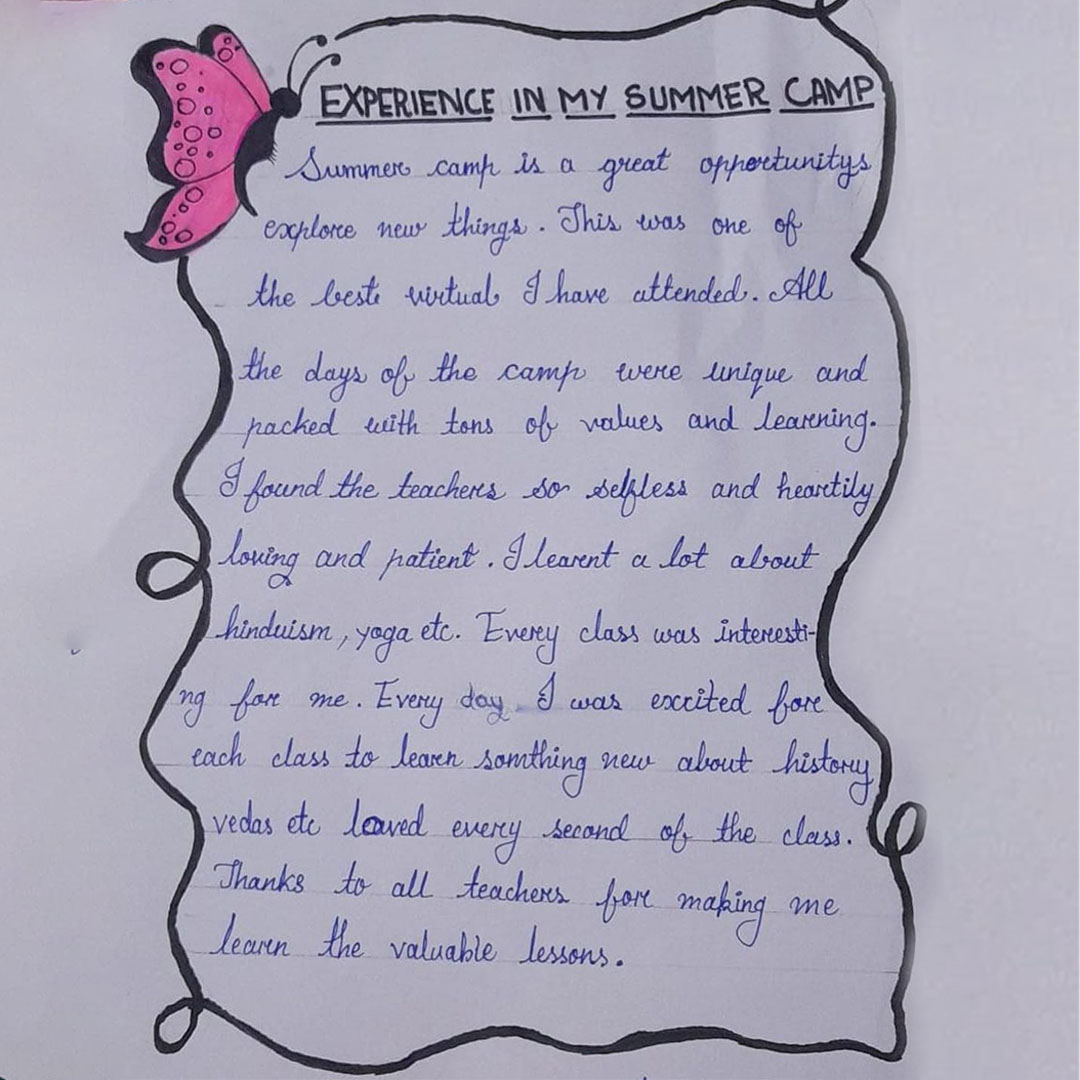 EXPERIENCE IN MY SUMMER CAMP
Summer camp is a great opportunitys
explore new things. This was one of
the best virtual I have attended. All
the days of the camp were unique and
packed with tons of values and learning.
I found the teachers so selfless and heartily
loving and patient. I learent a lot about
hinduism, yoga etc. Every class was interesti-
ng for me. Every day I was excited for
each class to learn somthing new about history
vedas etc loved every second of the class.
Thanks to all teachers for making me
learn the valuable lessons.